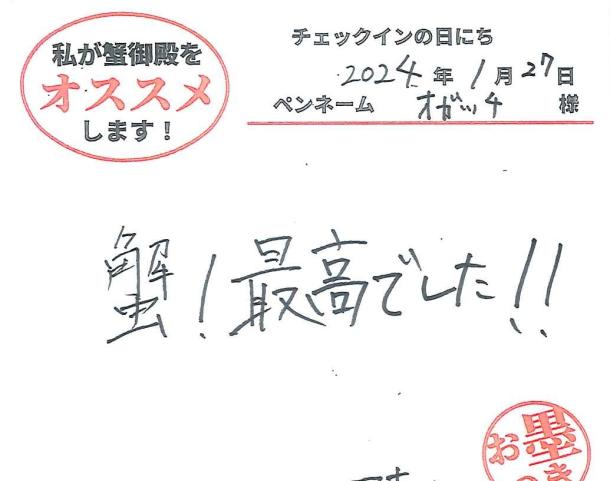 私が蟹御殿を
オススメ
します！
チェックインの日にち
2024年1月27日
ペンネーム オガッチ 様
蟹！最高でした!!
お墨
つき